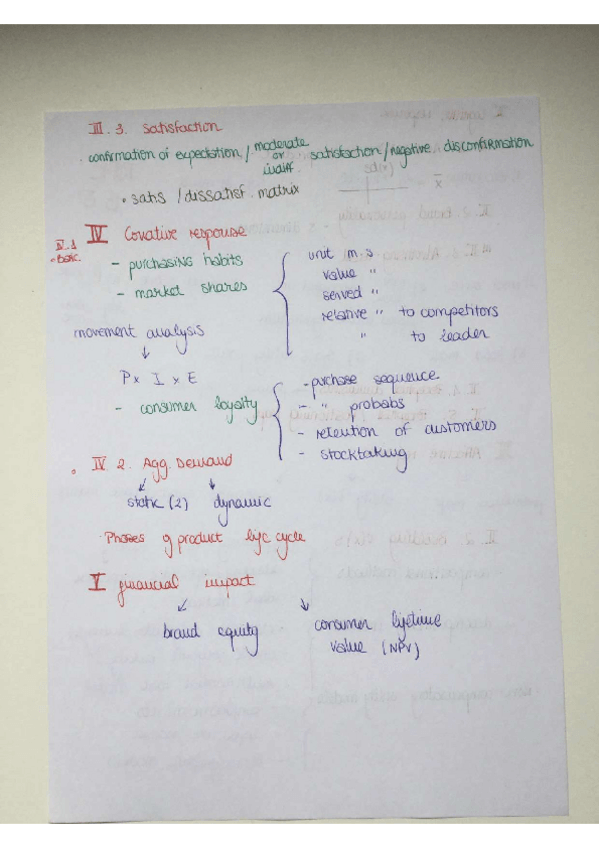 III. 3. Satisfaction
· confirmation of expectation / moderate or indiff. satisfaction / negative disconfirmation
sd(x)
x̄
• satis / dissatisf. matrix
IV Conative response
IV.1
• Basic
- purchasing habits
- market shares
unit m. s
value "
served "
relative " to competitors
" to leader
movement analysis
P x I x E
- consumer loyalty
- purchase sequence
- " probabs
- retention of customers
- stocktaking
• IV 2. Agg. Demand
static (2) dynamic
· Phases of product life cycle
V financial impact
brand equity
consumer lifetime
value (NPV)